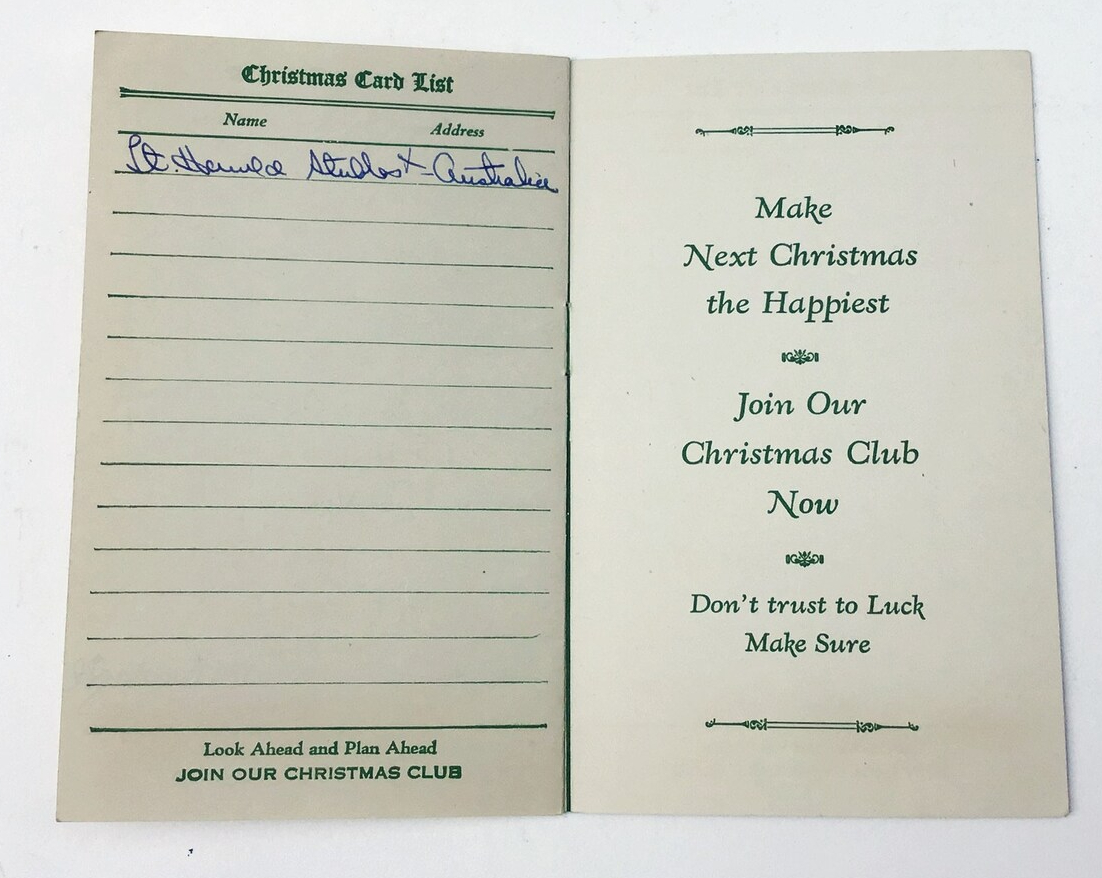 Christmas Card List
Name Address
Lt. Australia
Look Ahead and Plan Ahead
JOIN OUR CHRISTMAS CLUB
Make
Next Christmas
the Happiest
Join Our
Christmas Club
Now
Don't trust to Luck
Make Sure